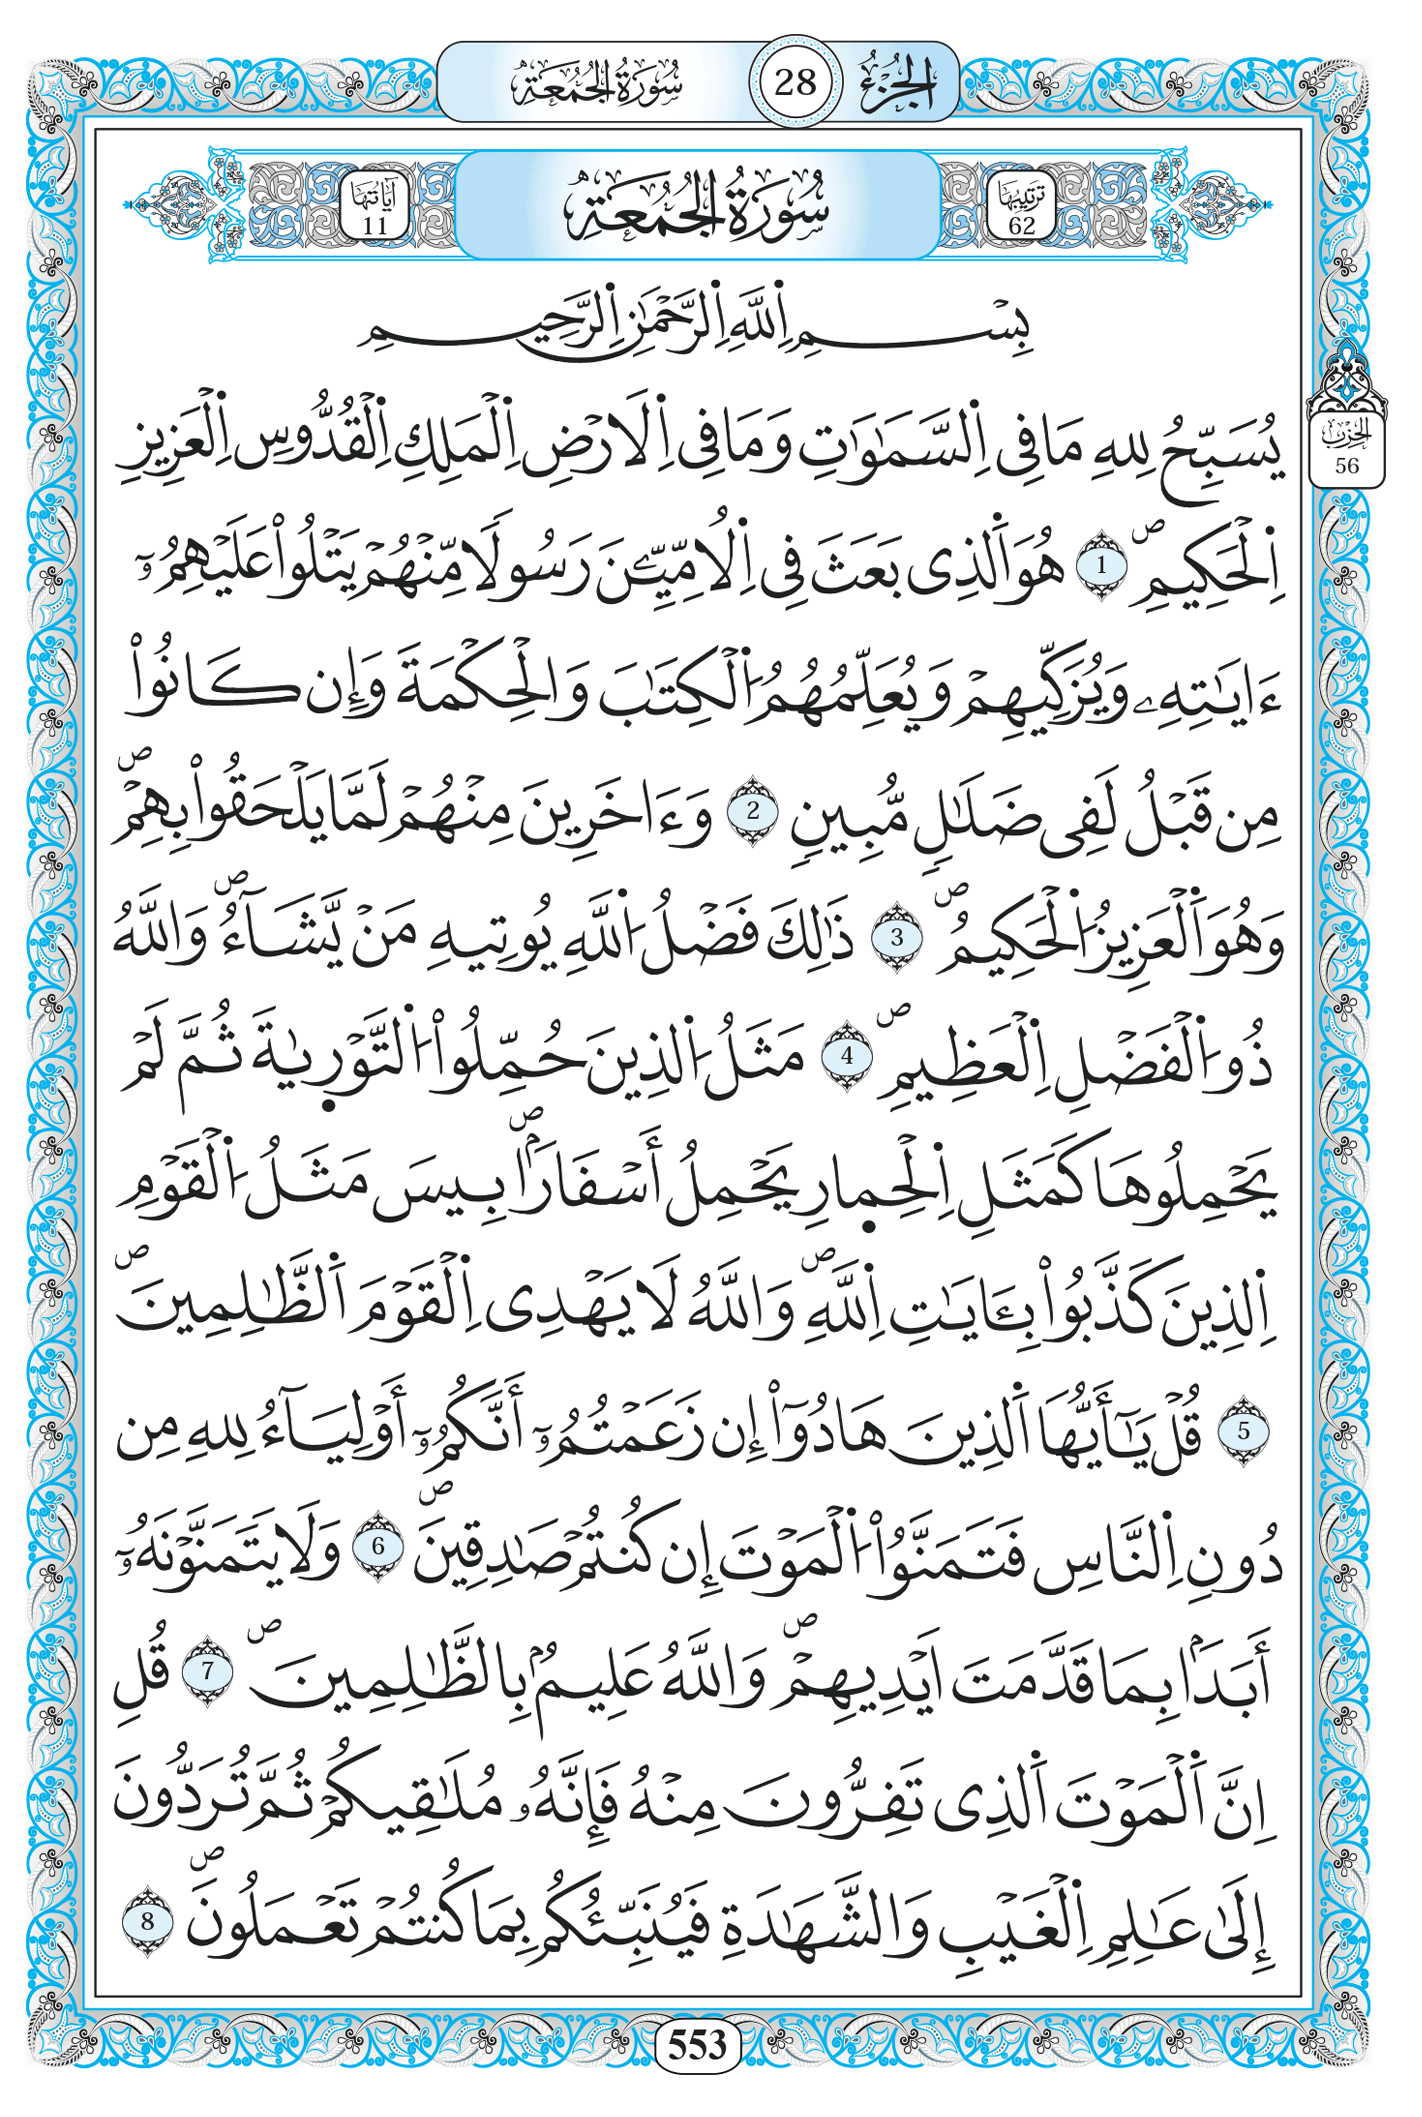 الجُزْءُ 28 سُورَةُ الجُمُعَةِ
تَرْتِيبُهَا 62 سُورَةُ الجُمُعَةِ آيَاتُهَا 11
بِسْمِ اِ۬للَّهِ اِ۬لرَّحْمَٰنِ اِ۬لرَّحِيمِ
يُسَبِّحُ لِلهِ مَا فِى اِ۬لسَّمَٰوَٰتِ وَمَا فِى اِ۬لَارْضِ اِ۬لْمَلِكِ اِ۬لْقُدُّوسِ اِ۬لْعَزِيزِ
الحِزْب 56
اِ۬لْحَكِيمِۖ 1 هُوَ اَ۬لذِى بَعَثَ فِى اِ۬لُامِّيِّـۧنَ رَسُولًا مِّنْهُمْ يَتْلُواْ عَلَيْهِمُۥٓ
ءَايَٰتِهِۦ وَيُزَكِّيهِمْ وَيُعَلِّمُهُمُ اُ۬لْكِتَٰبَ وَالْحِكْمَةَ وَإِن كَانُواْ
مِن قَبْلُ لَفِى ضَلَٰلٍ مُّبِينٍ 2 وَءَاخَرِينَ مِنْهُمْ لَمَّا يَلْحَقُواْ بِهِمْۖ
وَهُوَ اَ۬لْعَزِيزُ اُ۬لْحَكِيمُۖ 3 ذَٰلِكَ فَضْلُ اُ۬للَّهِ يُوتِيهِ مَنْ يَّشَآءُۖ وَاللَّهُ
ذُو اُ۬لْفَضْلِ اِ۬لْعَظِيمِۖ 4 مَثَلُ اُ۬لذِينَ حُمِّلُواْ اُ۬لتَّوْرِيٰةَ ثُمَّ لَمْ
يَحْمِلُوهَا كَمَثَلِ اِ۬لْحِمارِ يَحْمِلُ أَسْفَارَۢاۖ بِيسَ مَثَلُ اُ۬لْقَوْمِ
اِ۬لذِينَ كَذَّبُواْ بِـَٔايَٰتِ اِ۬للَّهِۖ وَاللَّهُ لَا يَهْدِى اِ۬لْقَوْمَ اَ۬لظَّٰلِمِينَۖ
5 قُلْ يَٰٓأَيُّهَا اَ۬لذِينَ هَادُوٓاْ إِن زَعَمْتُمُۥٓ أَنَّكُمُۥٓ أَوْلِيَآءُ لِلهِ مِن
دُونِ اِ۬لنَّاسِ فَتَمَنَّوُاْ اُ۬لْمَوْتَ إِن كُنتُمْ صَٰدِقِينَۖ 6 وَلَا يَتَمَنَّوْنَهُۥٓ
أَبَدَۢا بِمَا قَدَّمَتَ اَيْدِيهِمْۖ وَاللَّهُ عَلِيمُۢ بِالظَّٰلِمِينَۖ 7 قُلِ
اِنَّ اَ۬لْمَوْتَ اَ۬لذِى تَفِرُّونَ مِنْهُ فَإِنَّهُۥ مُلَٰقِيكُمْ ثُمَّ تُرَدُّونَ
إِلَىٰ عَٰلِمِ اِ۬لْغَيْبِ وَالشَّهَٰدَةِ فَيُنَبِّئُكُم بِمَا كُنتُمْ تَعْمَلُونَۖ 8
553